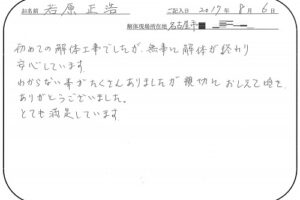 お名前 若原 正浩 ご記入日 2017年 8月 6日
解体現場所在地 名古屋市
初めての解体工事でしたが、無事に解体が終わり
安心しています。
わからない事がたくさんありましたが親切におしえて頂き
ありがとうございました。
とても満足しています